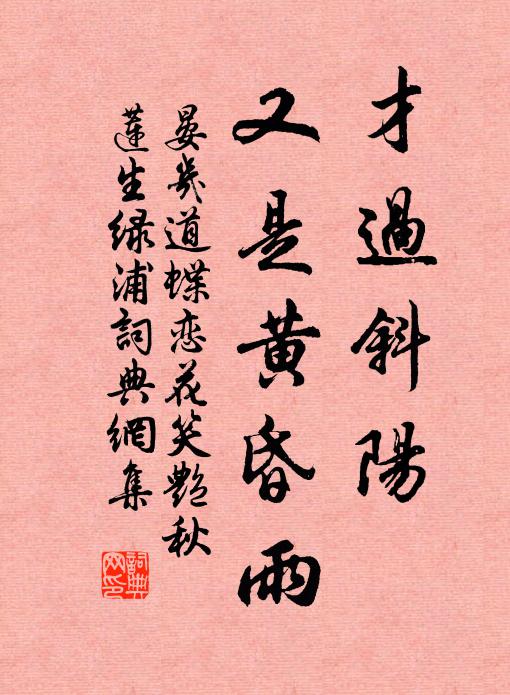 才過斜陽
又是黄昏雨
晏幾道蝶恋花笑艷秋
蓮生緑浦詞典網集
詞典
网印